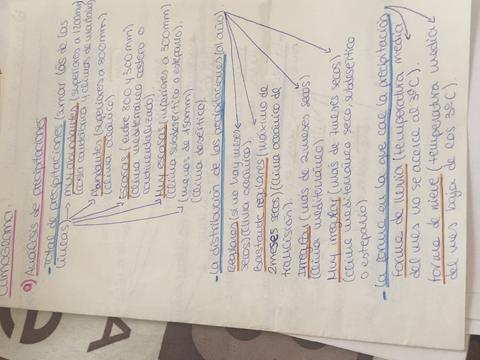 Climograma:
a) Análisis de precipitaciones
- Total de precipitaciones (sumar las de las
áreas)
Muy abundantes (superiores a 1200mm)
(costa cantábrica y climas de montaña)
Abundantes (superiores a 800mm)
(clima oceánico)
Escasas (entre 800 y 300mm)
(clima mediterráneo costero o
continentalizado)
Muy escasas (inferiores a 300mm)
(clima subdesértico o estepario).
(menos de 150mm)
(clima desértico).
- La distribución de las precipitaciones (al año).
Regulares (si no hay meses
secos) (clima oceánico).
Bastante regulares (máximo de
2 meses secos) (clima oceánico de
transición).
Irregular (más de 2 meses secos)
(clima mediterráneo).
Muy irregular (más de 7 meses secos)
(clima mediterráneo seco, subdesértico
o estepario)
- La forma en la que cae la precipitación
forma de lluvia (temperatura media
del mes no se acerce al 3ºC).
forma de nieve (temperatura media
del mes baja de los 3ºC).
A